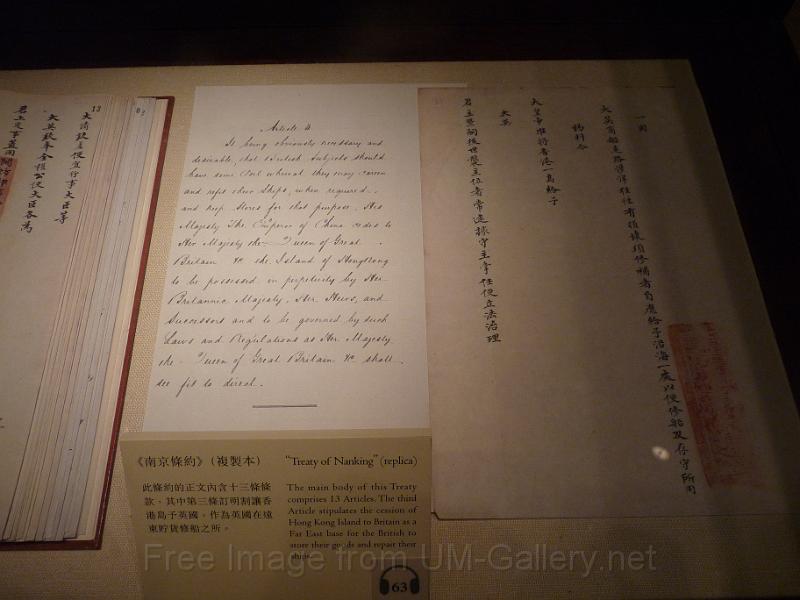 13
大清欽差便宜行事大臣等
大英欽奉全權公使大臣各為
君上定事蓋用
Article
It being obviously necessary and
desirable, that British Subjects should
have some Port whereat they may careen
and refit their Ships, when required,
and keep Stores for that purpose, His
Majesty The Emperor of China cedes to
Her Majesty the Queen of Great
Britain &c the Island of Hongkong
to be possessed in perpetuity by Her
Britannic Majesty, Her Heirs, and
Successors and to be governed by such
Laws and Regulations as Her Majesty
the Queen of Great Britain &c shall
see fit to direct.
一因
大英商船遠路涉洋往往有損壞須修補者自應給予沿海一處以便修船及存守所用
物料今
大皇帝准將香港一島給予
大英
君主暨嗣後世襲主位者常遠據守主掌任便立法治理
《南京條約》(複製本)
此條約的正文內含十三條條
款，其中第三條訂明割讓香
港島予英國，作為英國在遠
東貯貨修船之所。
"Treaty of Nanking" (replica)
The main body of this Treaty
comprises 13 Articles. The third
Article stipulates the cession of
Hong Kong Island to Britain as a
Far East base for the British to
store their goods and repair their
ships.
63
Free Image from UM-Gallery.net